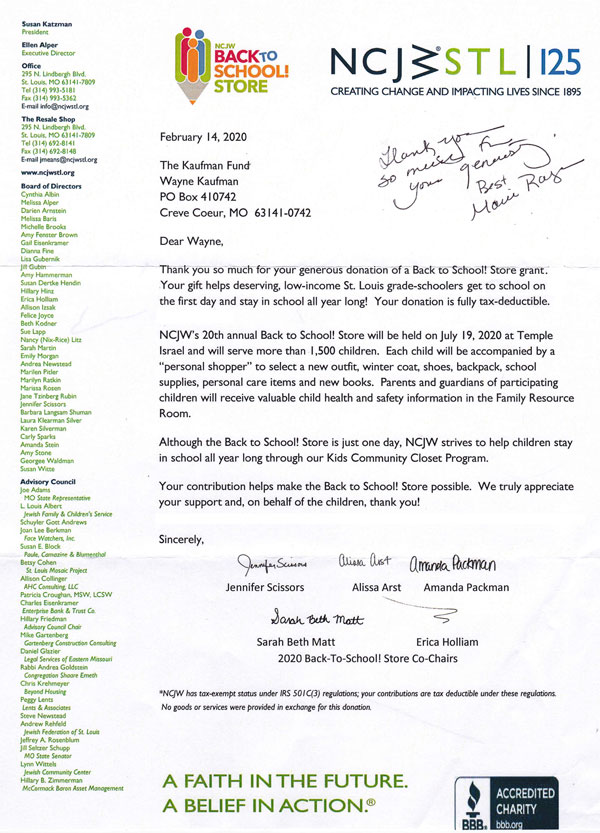 Susan Katzman
President
Ellen Alper
Executive Director
Office
295 N. Lindbergh Blvd.
St. Louis, MO 63141-7809
Tel (314) 993-5181
Fax (314) 993-5362
E-mail info@ncjwstl.org
The Resale Shop
295 N. Lindbergh Blvd.
St. Louis, MO 63141-7809
Tel (314) 692-8141
Fax (314) 692-8148
E-mail jmeans@ncjwstl.org
www.ncjwstl.org
Board of Directors
Cynthia Albin
Melissa Alper
Darien Arnstein
Melissa Baris
Michelle Brooks
Amy Fenster Brown
Gail Eisenkramer
Dianna Fine
Lisa Gubernik
Jill Gubin
Amy Hammerman
Susan Dertke Hendin
Hillary Hinz
Erica Holliam
Allison Izsak
Felice Joyce
Beth Kodner
Sue Lapp
Nancy (Nix-Rice) Litz
Sarah Martin
Emily Morgan
Andrea Newstead
Marilen Pitler
Marilyn Ratkin
Marissa Rosen
Jane Tzinberg Rubin
Jennifer Scissors
Barbara Langsam Shuman
Laura Klearman Silver
Karen Silverman
Carly Sparks
Amanda Stein
Amy Stone
Georgee Waldman
Susan Witte
Advisory Council
Joe Adams
MO State Representative
L. Louis Albert
Jewish Family & Children's Service
Schuyler Gott Andrews
Joan Lee Berkman
Face Watchers, Inc.
Susan E. Block
Paule, Camazine & Blumenthal
Betsy Cohen
St. Louis Mosaic Project
Allison Collinger
AHC Consulting, LLC
Patricia Croughan, MSW, LCSW
Charles Eisenkramer
Enterprise Bank & Trust Co.
Hillary Friedman
Advisory Council Chair
Mike Gartenberg
Gartenberg Construction Consulting
Daniel Glazier
Legal Services of Eastern Missouri
Rabbi Andrea Goldstein
Congregation Shaare Emeth
Chris Krehmeyer
Beyond Housing
Peggy Lents
Lents & Associates
Steve Newstead
Andrew Rehfeld
Jewish Federation of St. Louis
Jeffrey A. Rosenblum
Jill Seltzer Schupp
MO State Senator
Lynn Wittels
Jewish Community Center
Hillary B. Zimmerman
McCormack Baron Asset Management
NCJW
BACK TO
SCHOOL!
STORE
NCJW STL | 125
CREATING CHANGE AND IMPACTING LIVES SINCE 1895
Thank you
so much for
your generosity
Best
February 14, 2020
The Kaufman Fund
Wayne Kaufman
PO Box 410742
Creve Coeur, MO 63141-0742
Dear Wayne,
Thank you so much for your generous donation of a Back to School! Store grant.
Your gift helps deserving, low-income St. Louis grade-schoolers get to school on
the first day and stay in school all year long! Your donation is fully tax-deductible.
NCJW's 20th annual Back to School! Store will be held on July 19, 2020 at Temple
Israel and will serve more than 1,500 children. Each child will be accompanied by a
"personal shopper" to select a new outfit, winter coat, shoes, backpack, school
supplies, personal care items and new books. Parents and guardians of participating
children will receive valuable child health and safety information in the Family Resource
Room.
Although the Back to School! Store is just one day, NCJW strives to help children stay
in school all year long through our Kids Community Closet Program.
Your contribution helps make the Back to School! Store possible. We truly appreciate
your support and, on behalf of the children, thank you!
Sincerely,
Jennifer Scissors Alissa Arst Amanda Packman
Jennifer Scissors Alissa Arst Amanda Packman
Sarah Beth Matt
Sarah Beth Matt Erica Holliam
2020 Back-To-School! Store Co-Chairs
*NCJW has tax-exempt status under IRS 501C(3) regulations; your contributions are tax deductible under these regulations.
No goods or services were provided in exchange for this donation.
A FAITH IN THE FUTURE.
A BELIEF IN ACTION.®
BBB.
ACCREDITED
CHARITY
bbb.org